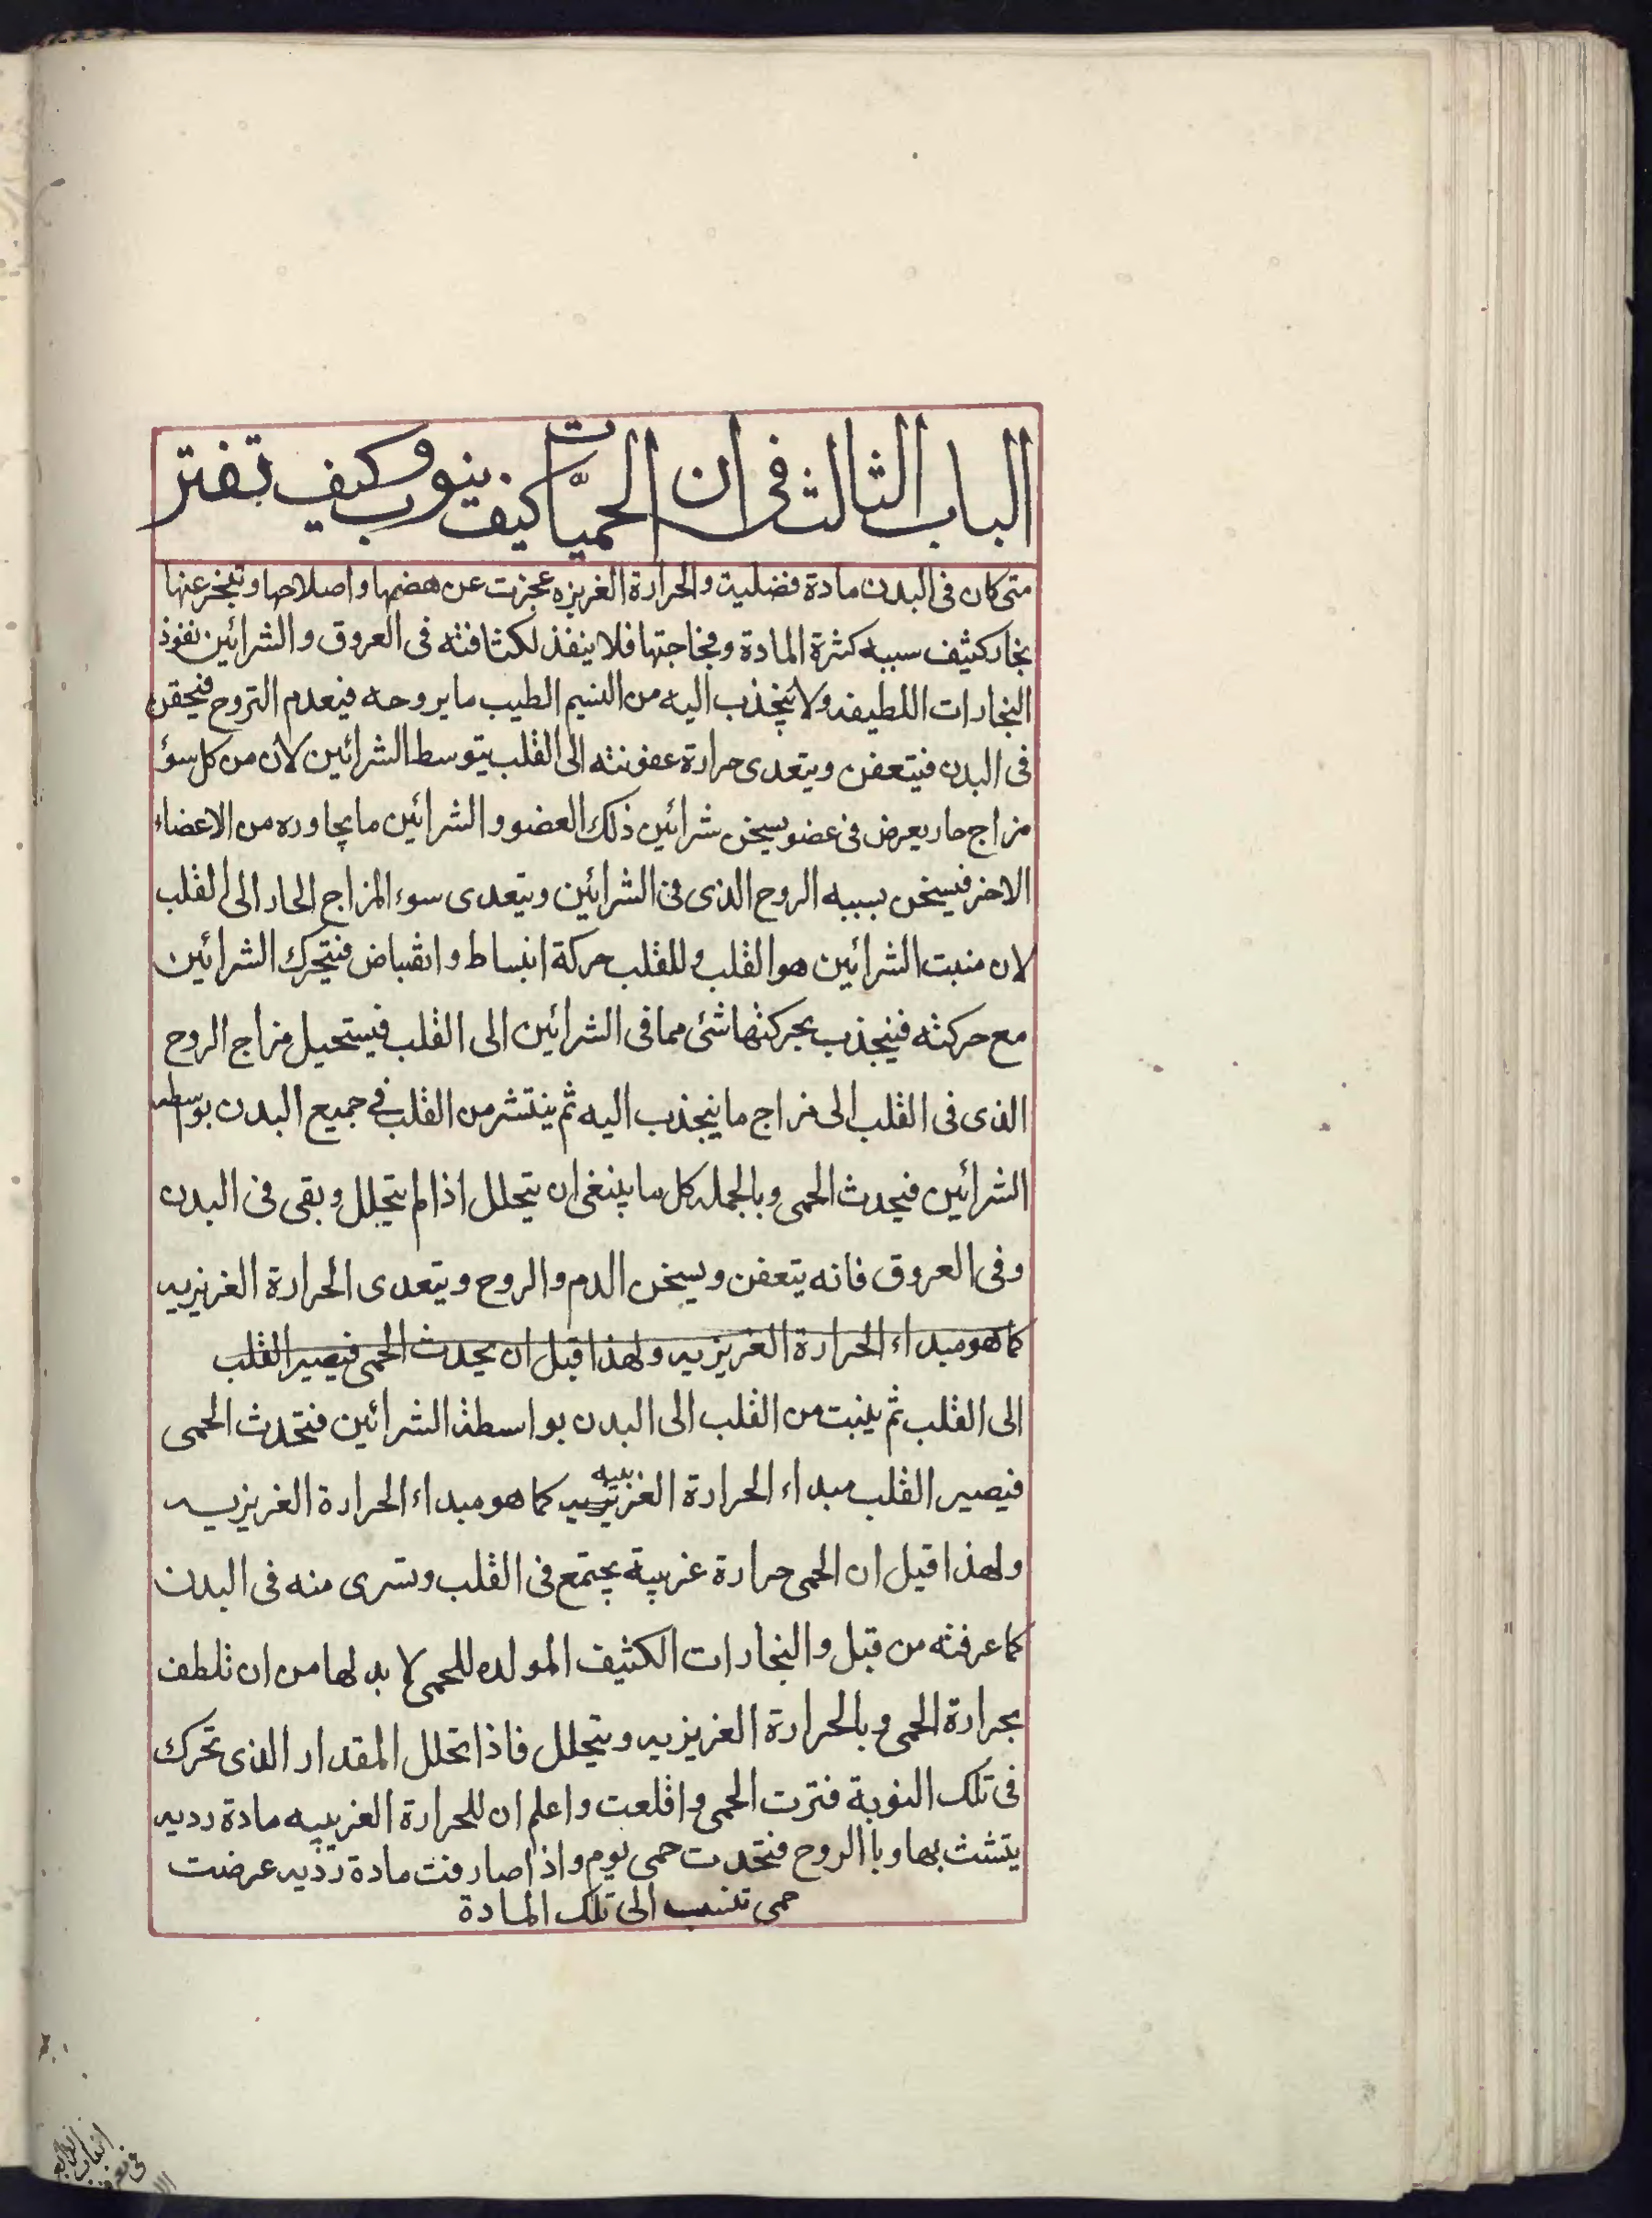 الباب الثالث فى ان الحميّات كيف ينوب وكيف تفتر
متى كان فى البدن مادة فضلية والحرارة الغريزه عجزت عن هضمها واصلاحها وتبخر عنها
بخار كثيف سببه كثرة المادة وفجاجتها فلا ينفذ لكثافته فى العروق والشرائين نفوذ
البخارات اللطيفه ولا ينجذب اليه من النسيم الطيب ما يروحه فيعدم التروح فيحقن
فى البدن فيتعفن ويتعدى حرارة عفونته الى القلب بتوسط الشرائين لان من كل سوؤ
مزاج حار يعرض فى عضو يسخن شرائين ذلك العضو والشرائين ما يجاوره من الاعضاء
الاخر فيسخن بسببه الروح الذى فى الشرائين ويتعدى سوء المزاج الحار الى القلب
لان منبت الشرائين هو القلب وللقلب حركة انبساط وانقباض فتحرك الشرائين
مع حركته فينجذب بحركتها شئ مما فى الشرائين الى القلب فيستحيل مزاج الروح
الذى فى القلب الى مزاج ما ينجذب اليه ثم ينتشر من القلب فى جميع البدن بوسطه
الشرائين فيحدث الحمى وبالجمله كل ما ينبغى ان يتحلل اذا لم يتحلل وبقى فى البدن
وفى العروق فانه يتعفن ويسخن الدم والروح ويتعدى الحرارة الغريزيه
كما هو مبداء الحرارة الغريزيه ولهذا قبل ان يحدث الحمى فيصير القلب
الى القلب ثم ينبت من القلب الى البدن بواسطة الشرائين فتحدث الحمى
فيصير القلب مبداء الحرارة الغريبيه كما هو مبداء الحرارة الغريزيه
ولهذا قيل ان الحمى حرارة غريبة يجتمع فى القلب وتسرى منه فى البدن
كما عرفته من قبل والبخارات الكثيف المولده للحمى لا بد لها من ان تلطف
بحرارة الحمى وبالحرارة الغريزيه ويتحلل فاذا تحلل المقدار الذى تحرك
فى تلك النوبة فترت الحمى واقلعت واعلم ان للحرارة الغريبيه مادة رديه
يتشث بها وبا الروح فتحدث حمى يوم واذا صارفت مادة رديه عرضت
حمى تنسب الى تلك المادة